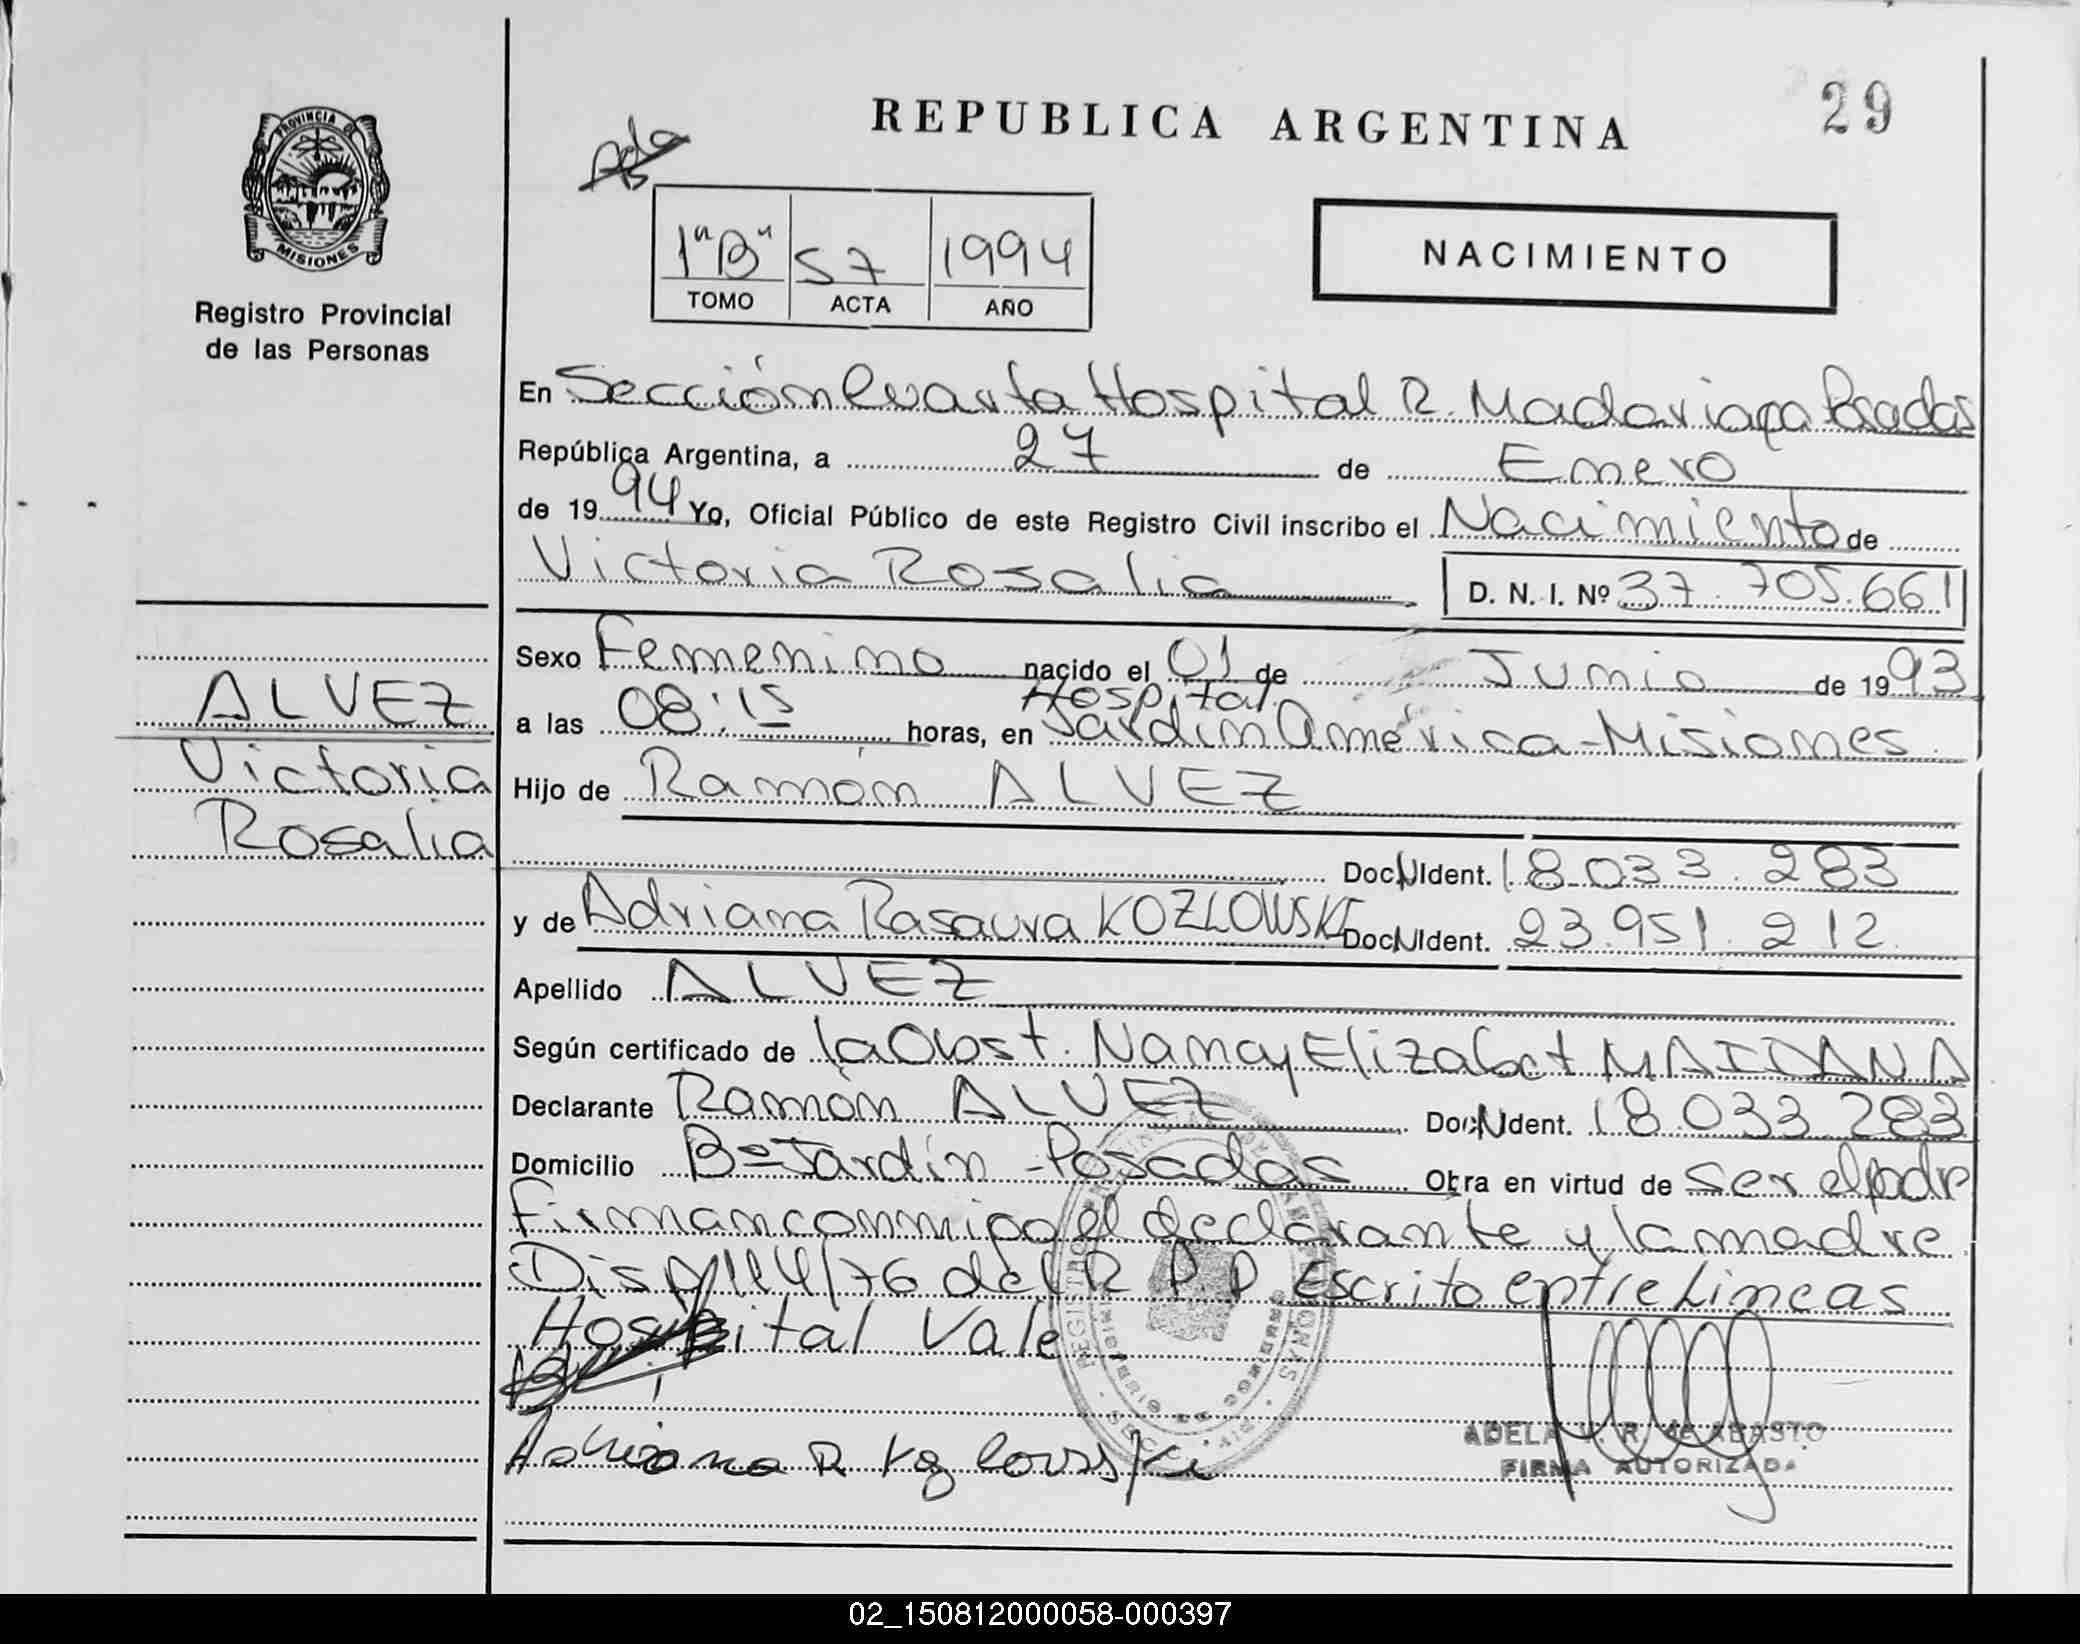 REPUBLICA ARGENTINA
29
PROVINCIA DE
MISIONES
Registro Provincial
de las Personas
1"B" 57 1994
TOMO ACTA AÑO
NACIMIENTO
En Sección Cuarta Hospital R. Madariaga Posadas
República Argentina, a 27 de Enero
de 1994 Yo, Oficial Público de este Registro Civil inscribo el Nacimiento de
Victoria Rosalia D. N. I. Nº 37.705.661
Sexo Femenino nacido el 01 de Junio de 1993
Hospital
a las 08:15 horas, en Jardin América - Misiones
Hijo de Ramón ALVEZ
Doc N Ident. 18.033.283
y de Adriana Rasaura KOZLOWSKI Doc N Ident. 23.951.212
Apellido ALVEZ
Según certificado de la Obst. Nancy Elizabet MAIDANA
Declarante Ramón ALVEZ Doc N Ident. 18.033.283
Domicilio Bº Jardín - Posadas Obra en virtud de ser el padre
Firman conmigo el declarante y la madre
Disp 114/76 del R P P Escrito entre Lineas
Hospital Vale
Adriana R Kozlowski
ADELA R. de ABASTO
FIRMA AUTORIZADA
ALVEZ
Victoria
Rosalia
02_150812000058-000397